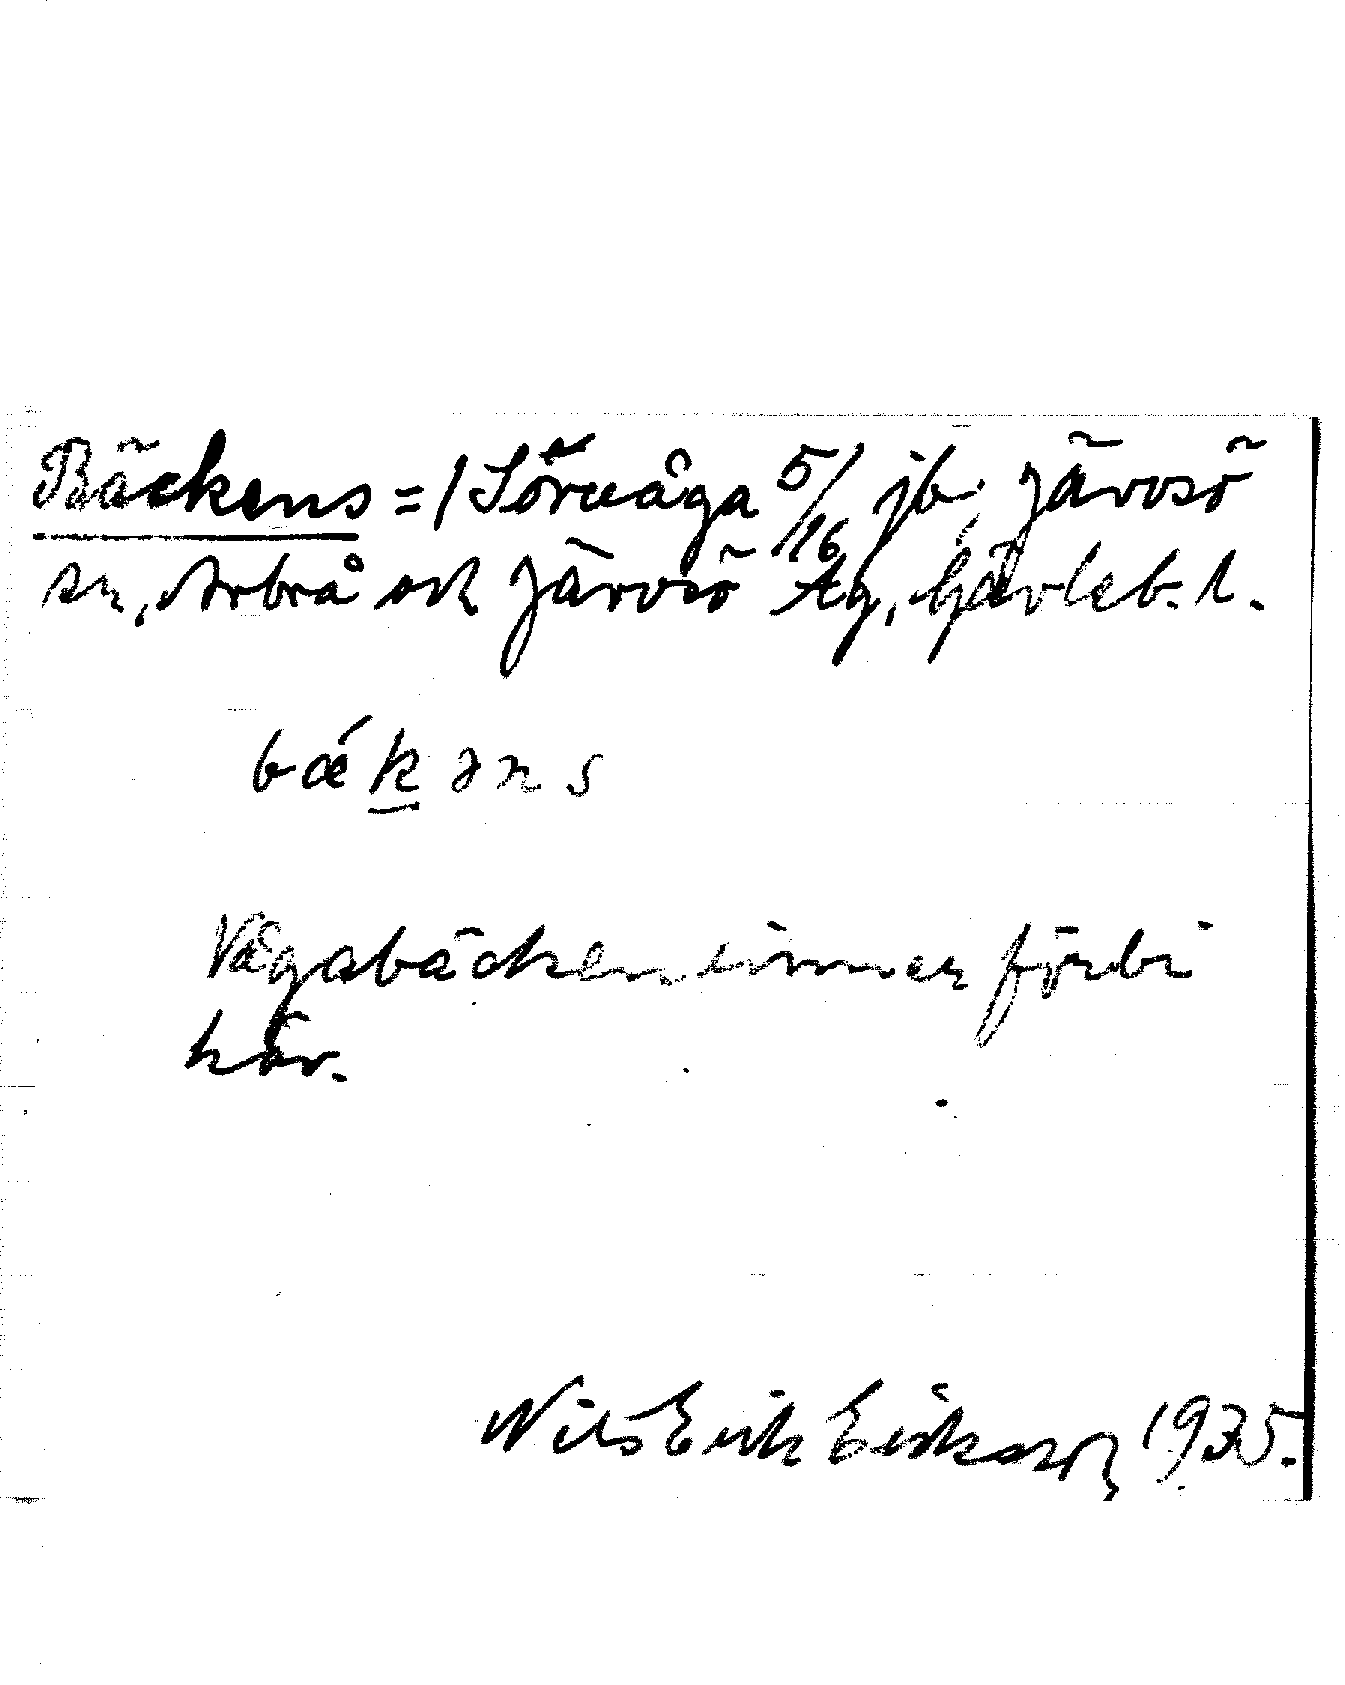 Bäckens = 1 Sörvåga 5/16 jb, Järvsö
sn, Arbrå och Järvsö tg, Gävleb. l.
bækəns
Vågabäcken rinner förbi
här.
Nils Erik Eriksson 1935.